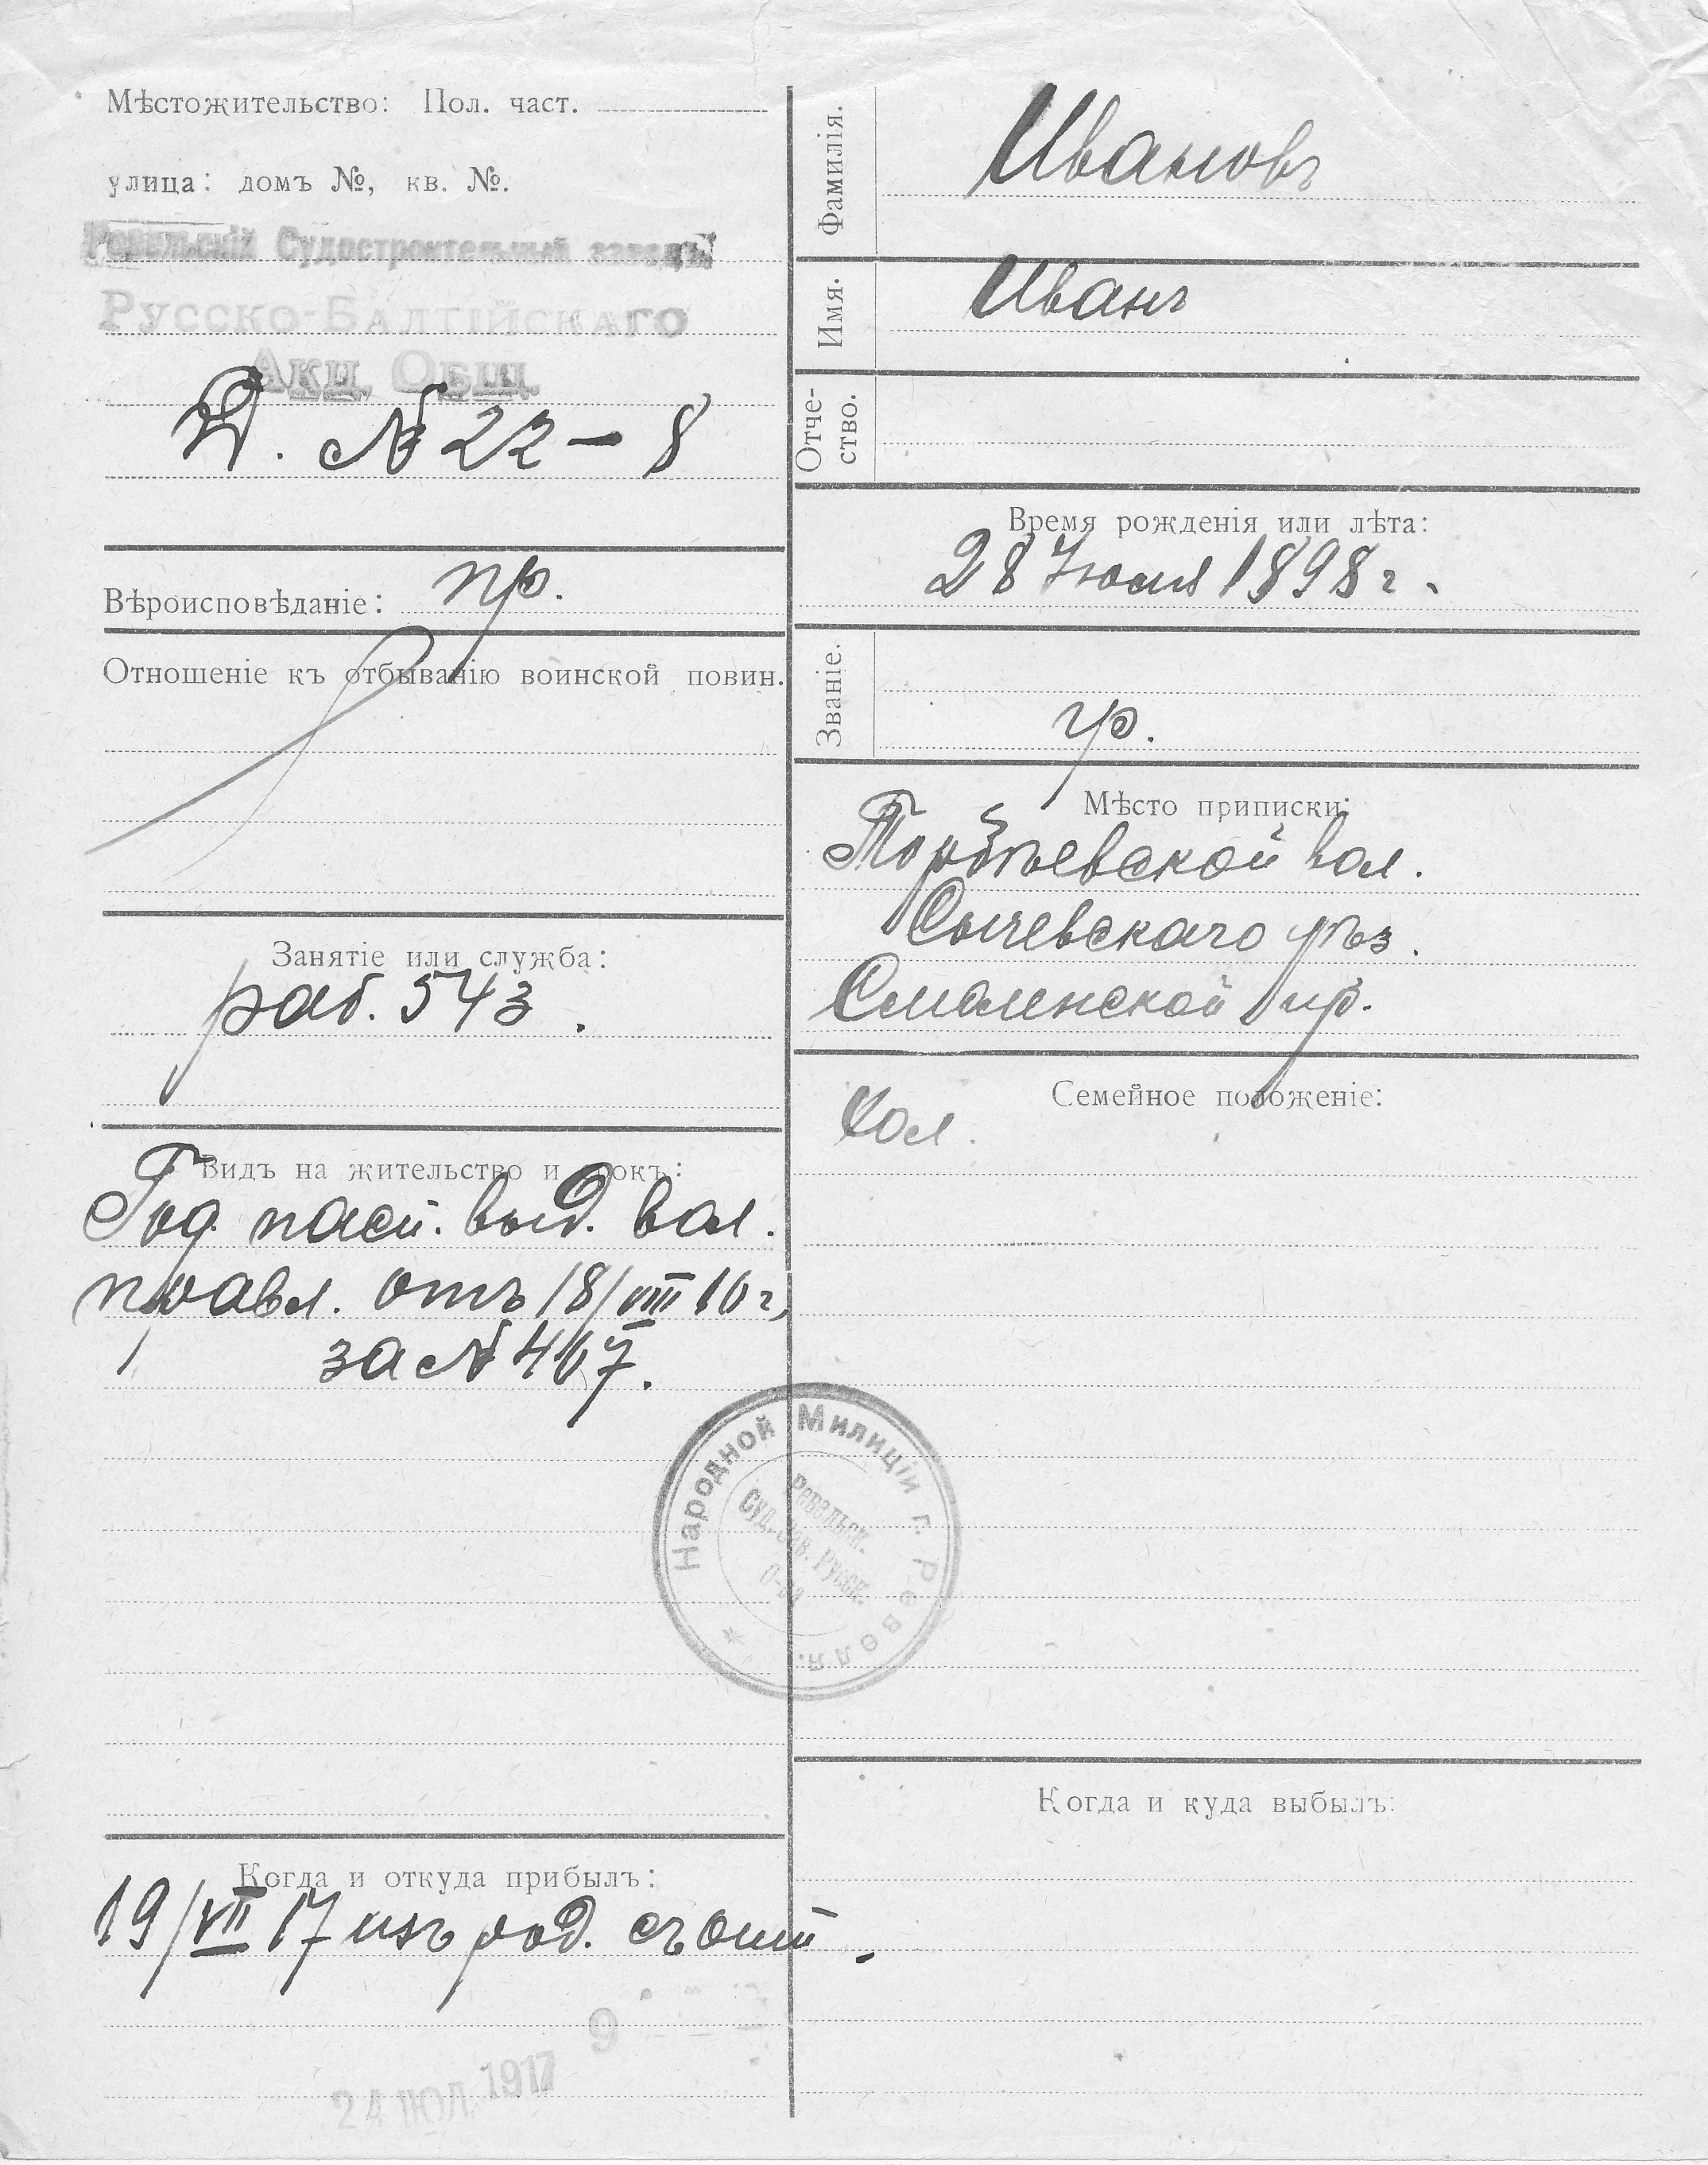 Мѣстожительство: Пол. част.
улица: домъ №, кв. №.
Ревельскій Судостроительный заводъ
Русско-Балтійскаго
Акц. Общ.
Д. № 22 – 8
Вѣроисповѣданіе: пр.
Отношеніе къ отбыванію воинской повин.
Занятіе или служба:
раб. 543.
Видъ на жительство и срокъ:
Год. пасп. выд. вол.
правл. отъ 18/VIII 16 г.
за № 467.
Когда и откуда прибылъ:
19/VII 17 изъ род.
24 ІЮЛ. 1917
9
Фамилія. Ивановъ
Имя. Иванъ
Отче-
ство.
Время рожденія или лѣта:
28 Іюля 1898 г.
Званіе. гр.
Мѣсто приписки:
вол.
Сычевскаго уѣз.
Смоленской губ.
Семейное положеніе:
хол.
Народной Милиціи г. Ревеля.
Ревельск.
Суд. Зав. Русск.
О-ва
Когда и куда выбылъ: